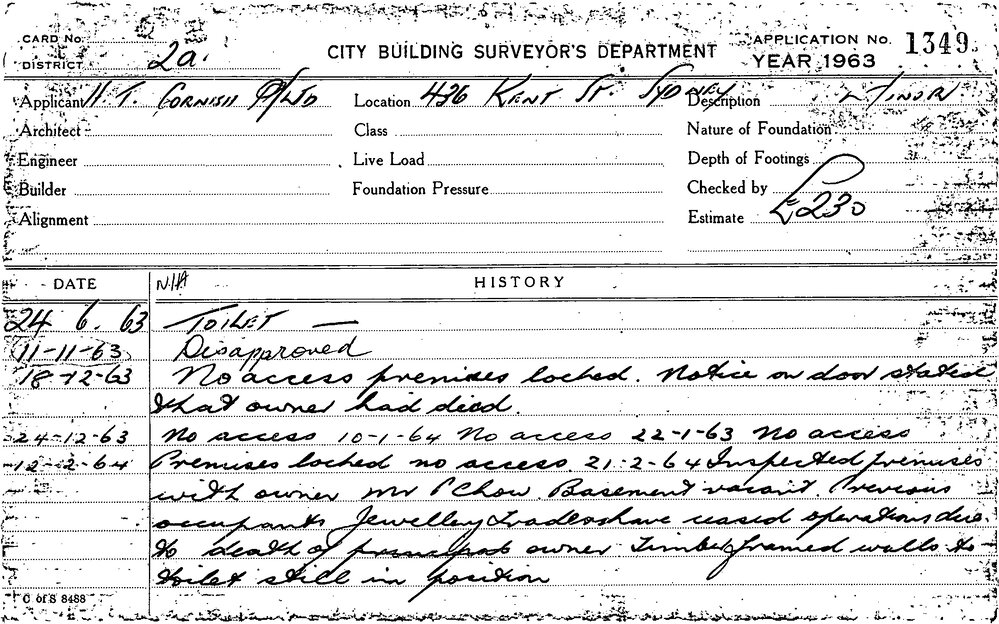 CARD No.
DISTRICT 2a.
CITY BUILDING SURVEYOR'S DEPARTMENT
APPLICATION No. 1349
YEAR 1963
Applicant H T. CORNISH P/LTD Location 436 KENT ST. SYDNEY Description MINOR
Architect Class Nature of Foundation
Engineer Live Load Depth of Footings
Builder Foundation Pressure Checked by
Alignment Estimate £230
DATE N/A HISTORY
24 6. 63 TOILET —
11-11-63 Disapproved
18-12-63 No access premises locked. Notice on door stated
that owner had died.
24-12-63 No access 10-1-64 No access 22-1-63 No access
12-2-64 Premises locked no access. 21-2-64 Inspected premises
with owner Mr P Chow. Basement vacant. Previous
occupants Jewellery Traders have ceased operations due
to death of principal owner Timber framed walls to
toilet still in position
C of S 8488